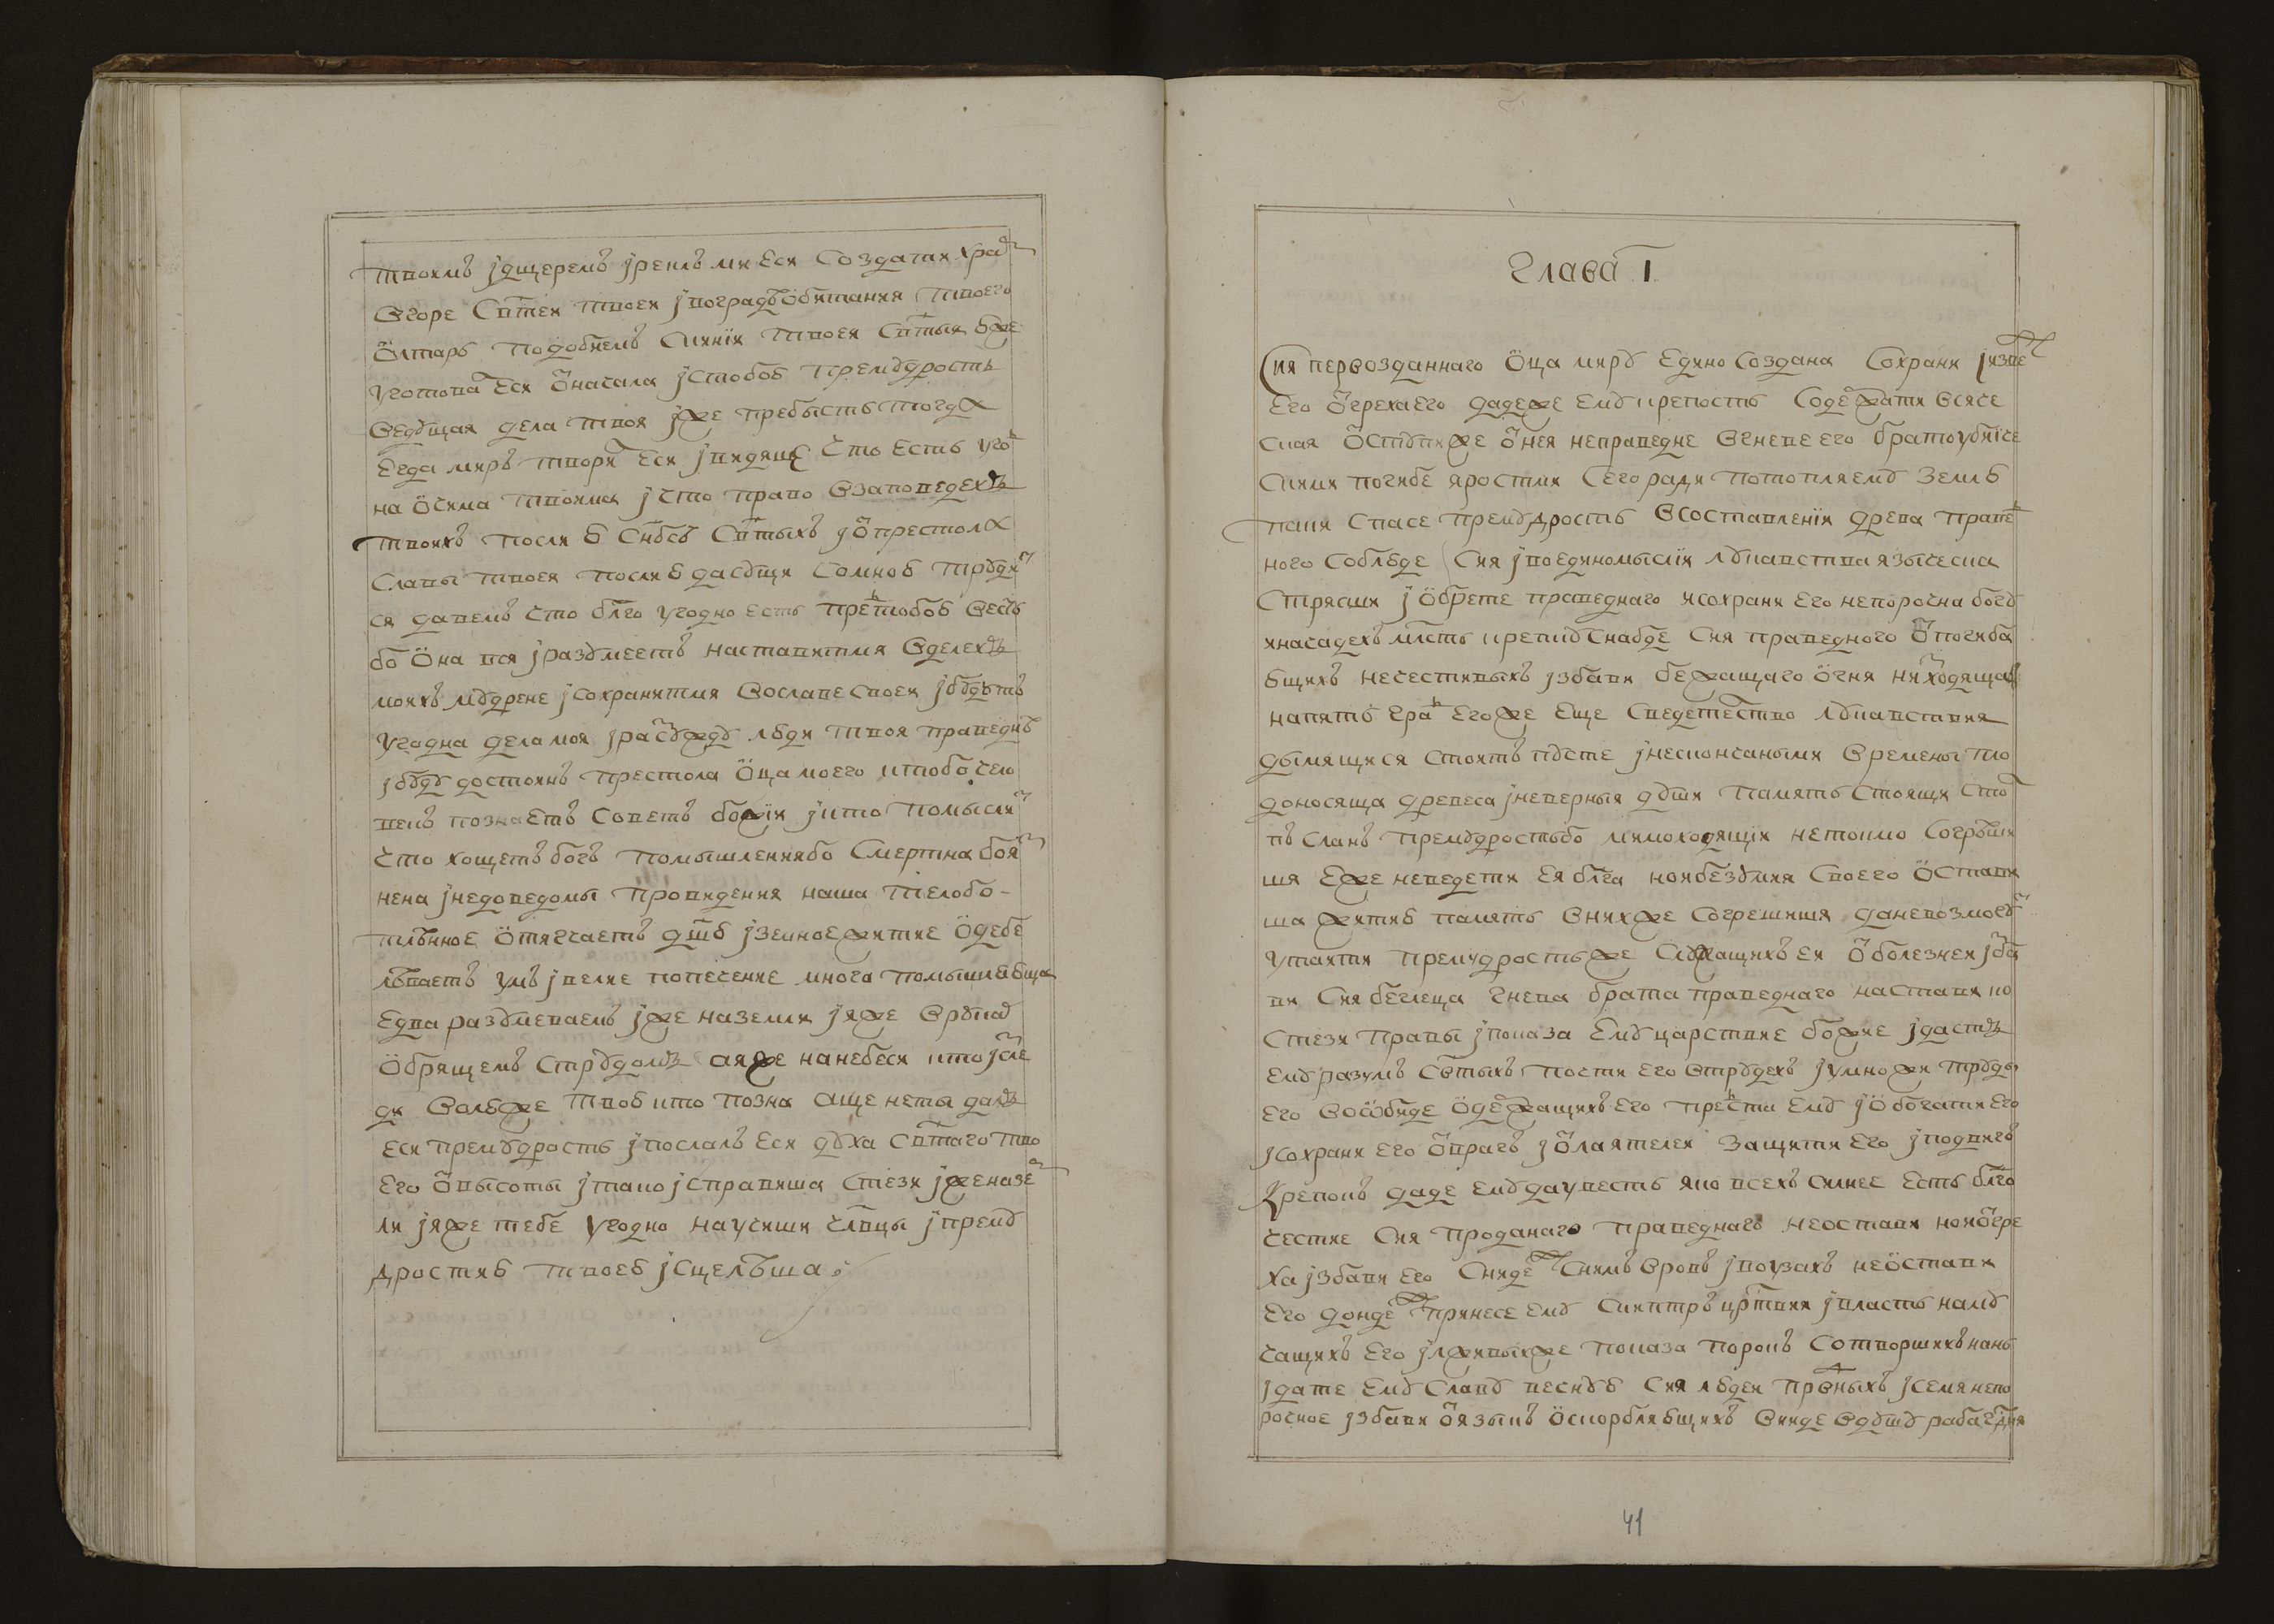 твоимъ ꙇдщеремъ ꙇреклъ ми еси создати храм
вгоре свтей твоей ꙇвоградѣ ѻбитания твоего
ѻлтарь подобиемъ скинїи твоея свтыя юже
уготовал еси ѿначала ꙇстобою премудрость
ведущая дела твоя ꙇже пребысть тогда
егда миръ творил еси ꙇвидящи что есть уго
на ѻчима твоима ꙇ что право взаповедехъ
твоихъ посли ю снбсъ свтыхъ ꙇ ѿпрестола
славы твоея послию дасущи сомною трудит
ся давемъ что блго угодно есть пред тобою весть
бо ѻна вся ꙇразумеетъ наставитмя вделехъ
моихъ мудрене ꙇсохранитмя вославе своей ꙇбудутъ
угодна дела моя ꙇразсужду люди твоя праведнѣ
ꙇбуду достоинъ престола ѻца моего ктобо чело
векъ познаетъ советъ божїи ꙇкто помыслит
что хощетъ богъ помышлениябо смертна бояз
нена ꙇнедоведомы провидения наша тѣлобо-
тлѣнное ѻтягчаетъ дшю ꙇземное житие ѻдебе
лѣваетъ умъ ꙇвелие попечение многа помышляюща
едва разумеваемъ ꙇже наземли ꙇяже вруках
ѻбрящемъ струдомъ аяже нанебеси кто ꙇсле
ди волюже твою кто позна аще неты далъ
еси премудрость ꙇпослалъ еси духа свтаго тво
его ѿвысоты ꙇтако ꙇсправиша стези ꙇженазем
ли ꙇяже тебе угодно научиши члвцы ꙇпрему
дростию твоею ꙇсцелѣша

Глава I
Сия первозданнаго ѻца миру едино создана сохрани ꙇизвет
его ѿгрехаего дадеже ему крепость содержати всяче
ская ѿступиже ѿнея неправедне вгневе его братоубийче
скими погибе яростми сегоради потопляему землю
паки спасе премудрость всоставлении древа правед
ного соблюде сия ꙇвоединомыслии лукавства языческа
стрясши ꙇ ѻбрете праведнаго исохрани его непорочна богу
инасадехъ мсть крепку снабде сия праведного ѿпогиба
ющихъ нечестивыхъ ꙇзбави бежащаго огня нисходящаго
напять град егоже еще сведетельство лукавствия
дымящися стоитъ пусте ꙇнесконсаными времены пло
доносяща древеса ꙇневерныя души память стоящи стол
пъ сланъ премудростьбо мимоходящїи нетокмо согрѣши
ша еже неведети ея блга нонбезумия своего ѻстави
ша житию память внихже согрешиша даневозмогут
утаити премудростьже служащихъ ей ѿболезней ꙇзба
ви сия беглеца гнева брата праведнаго настави по
стези правы ꙇпоказа ему царствие божие ꙇдастъ
ему разумъ свтыхъ почти его втрудехъ ꙇумножи труды
его вообиде ѻдержащихъ его предста ему ꙇ ѻбогати его
ꙇсохрани его ѿврагъ ꙇ ѿлаятелей защити его ꙇподвигъ
крепокъ даде ему даувесть яко всехъ силнее есть блго
честие сия проданаго праведнаго неостави ноизгре
ха ꙇзбави его снидет снимъ вровъ ꙇвоузахъ неѻстави
его дондеже принесе ему скиптръ цртвия ꙇвласть наму
чащихъ его ꙇлживыхже показа порокъ сотворшихъ нань
ꙇдаде ему славу вечную сия людей првныхъ ꙇсемянепо
рочное ꙇзбави ѿязыкъ ѻскорбляющихъ вниде вдушу раба гдня
41